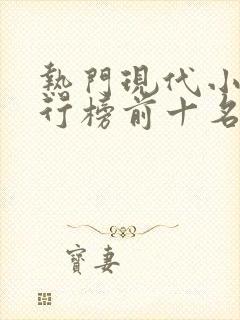 熱門現代小
行榜前十名
寶妻